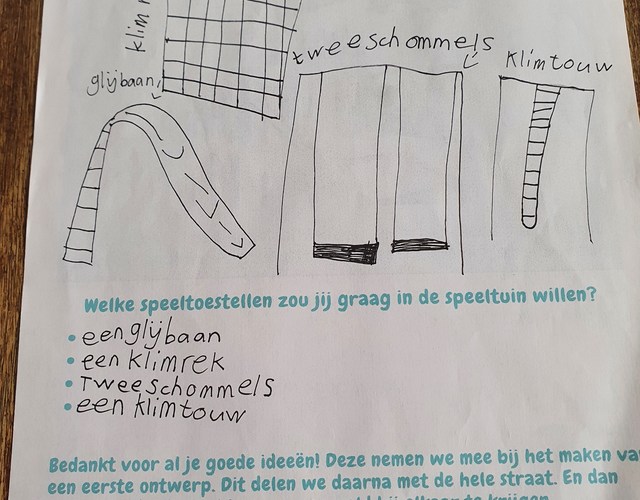 klim
tweeschommels
Klimtouw
glijbaan
Welke speeltoestellen zou jij graag in de speeltuin willen?
• een glijbaan
• een klimrek
• Tweeschommels
• een klimtouw
Bedankt voor al je goede ideeën! Deze nemen we mee bij het maken va
een eerste ontwerp. Dit delen we daarna met de hele straat. En dan